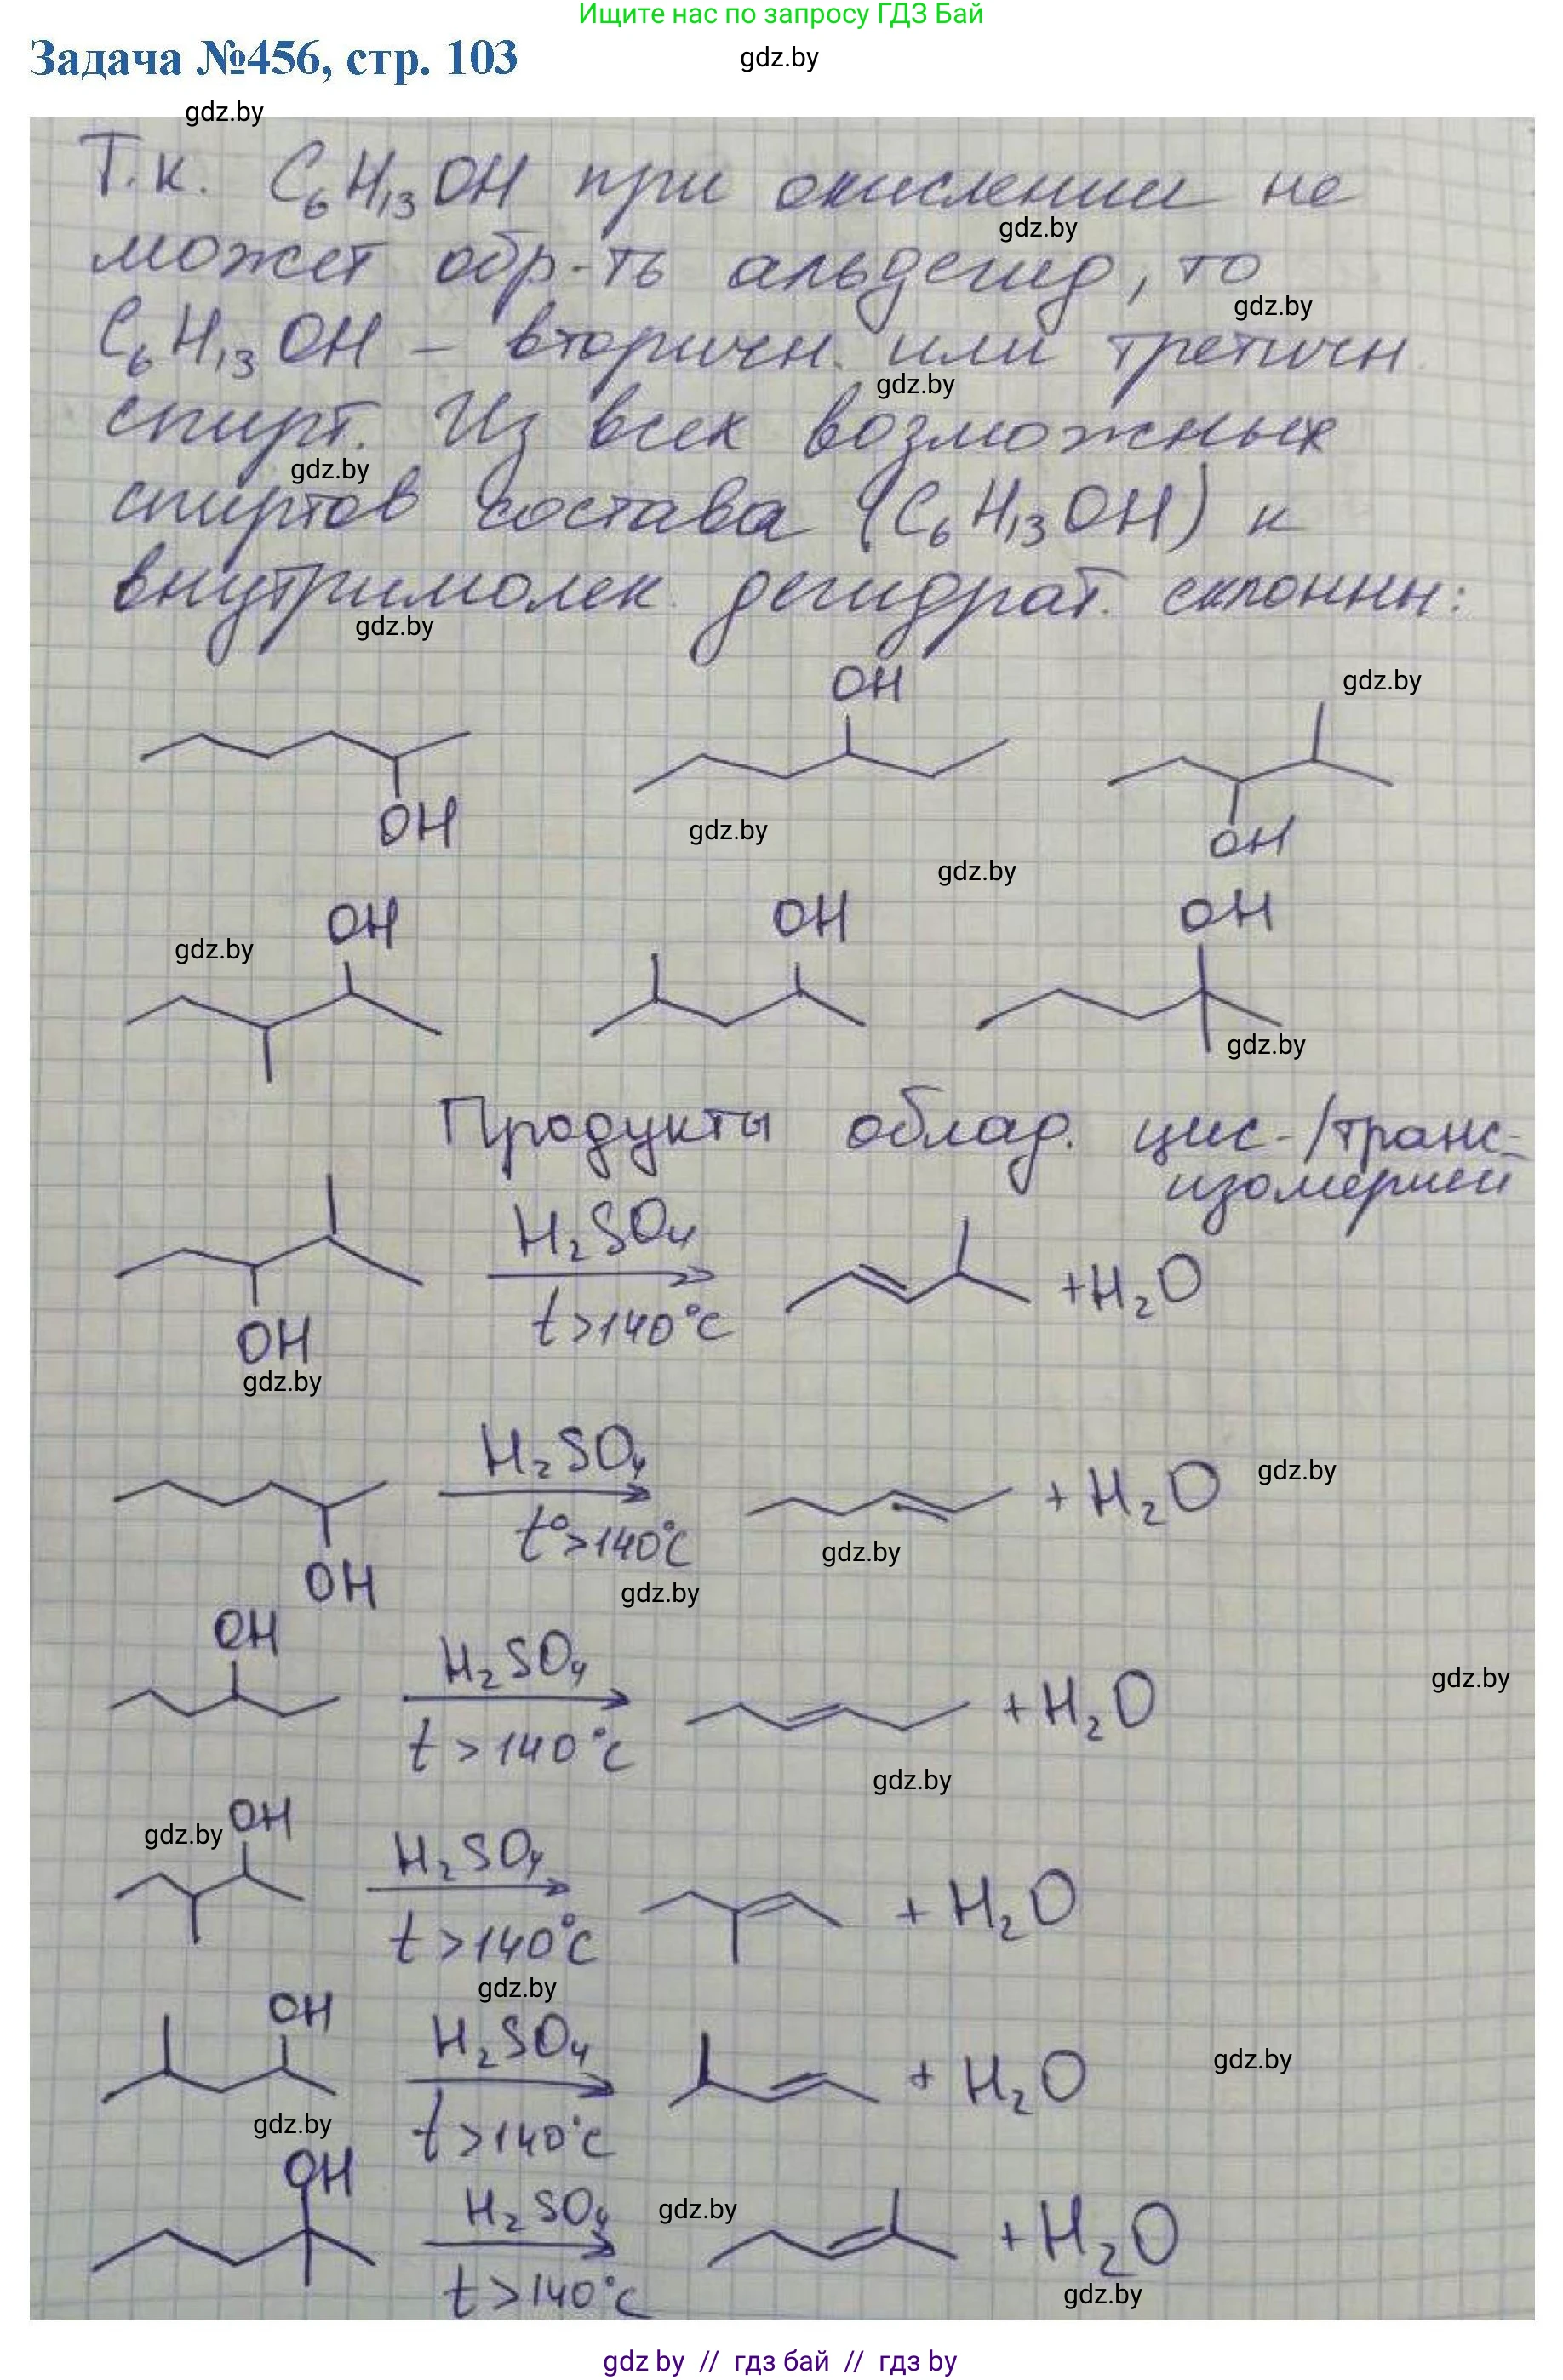 Ищите нас по запросу ГДЗ Бай
Задача №456, стр. 103
gdz.by
gdz.by
Т.к. C₆H₁₃OH при окислении не
gdz.by
может обр-ть альдегид, то
gdz.by
C₆H₁₃OH – вторичн. или третичн.
gdz.by
спирт. Из всех возможных
gdz.by
спиртов состава (C₆H₁₃OH) к
внутримолек. дегидрат. склонны:
gdz.by
OH
gdz.by
OH
gdz.by
OH
gdz.by
OH
OH
OH
gdz.by
gdz.by
Продукты облад. цис-/транс-
изомерией
H₂SO₄
t>140°C
+H₂O
OH
gdz.by
H₂SO₄
t°>140°C
+ H₂O
gdz.by
gdz.by
OH
gdz.by
OH
H₂SO₄
t >140°C
+H₂O
gdz.by
gdz.by
gdz.by
OH
H₂SO₄
t >140°C
+ H₂O
gdz.by
OH
H₂SO₄
t >140°C
+ H₂O
gdz.by
gdz.by
OH
H₂SO₄
t >140°C
gdz.by
+H₂O
gdz.by
gdz by // гдз бай // гдз by